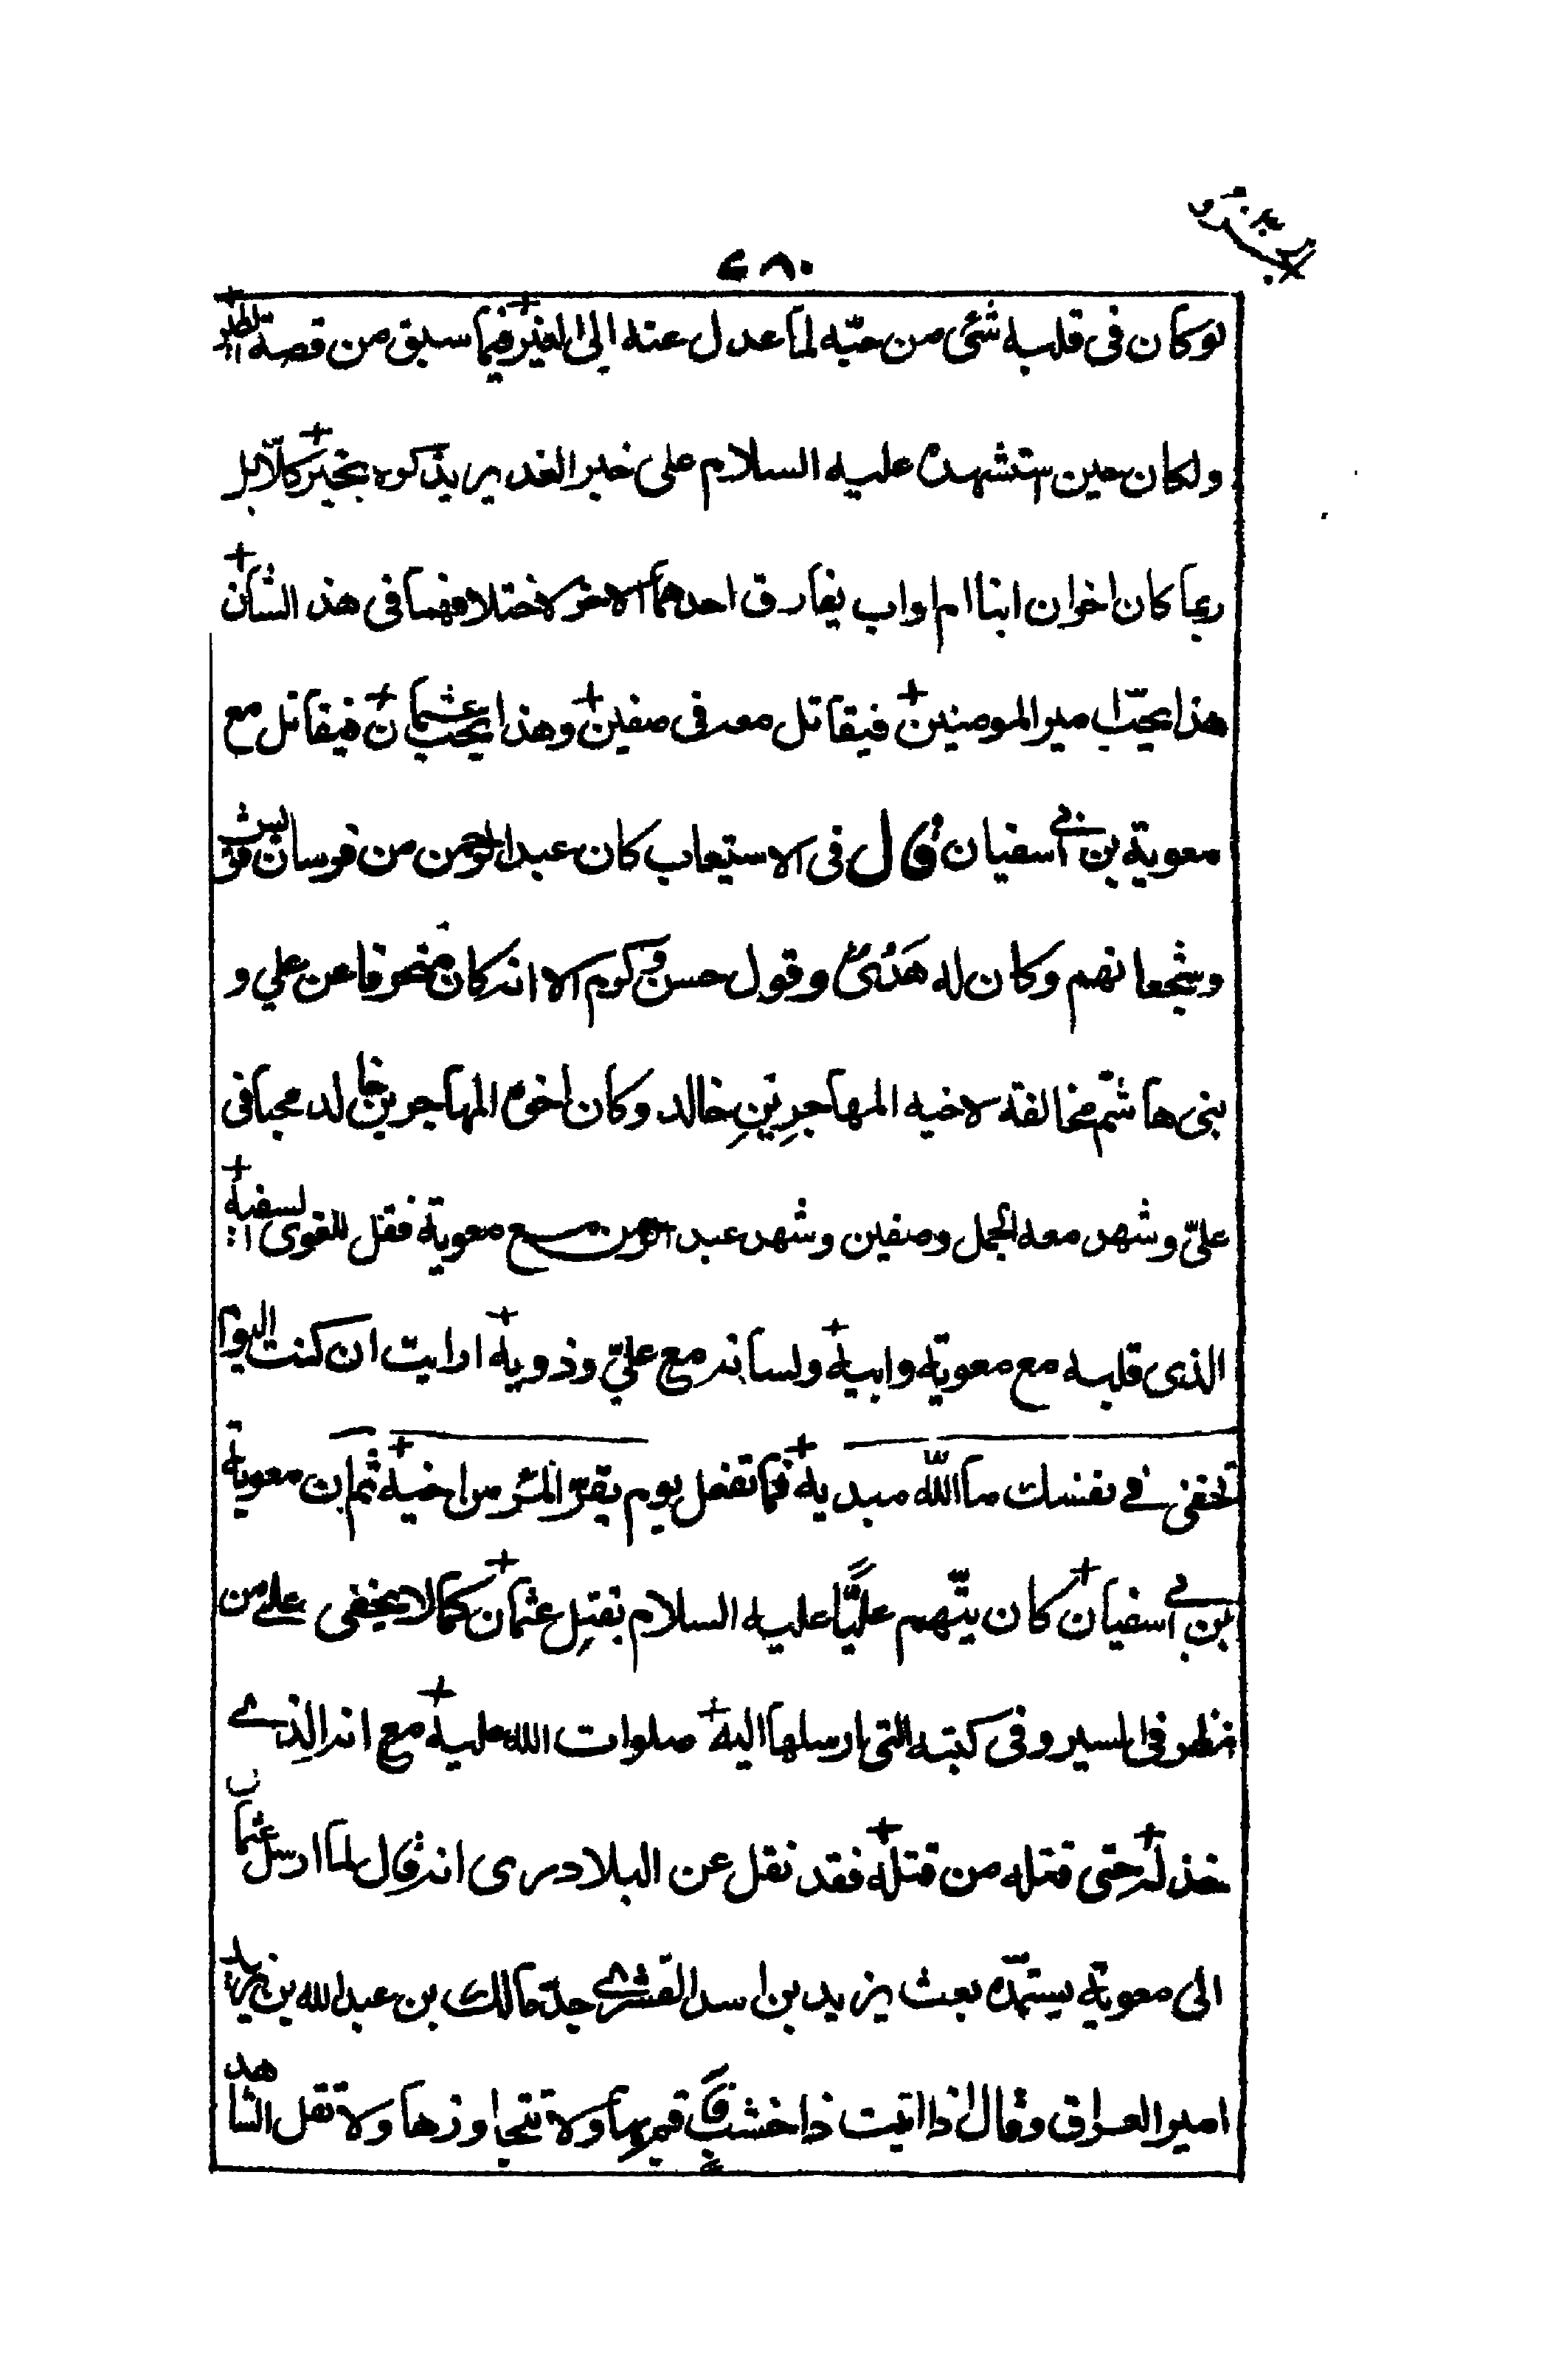 ٤٨٠
لو كان فى قلبه شئ من حبّه لما عدل عنه الى الغير فيما سبق من قصة الطير
ولكان حين استشهده عليه السلام على خبر الغدير يذكره بخير كلّا بل
ربما كان اخوان ابنا ام واب يفارق احدهما الاخر لاختلافهما فى هذ الشأن
هذا يحبّ امير المومنين فيقاتل معه فى صفين وهذا يحبّ عثمان فيقاتل مع
معوية بن ابي سفيان قال فى الاستيعاب كان عبد الرحمن من فرسان قريش
وشجعانهم وكان له هَدْىٌ وقول حسن وكرم الا انه كان منحرفا عن علي و
بنى هاشم مخالفة لاخيه المهاجرِ بْنِ خالد وكان اخوه المهاجر بن خالد محبا فى
عليّ وشهد معه الجمل وصفين وشهد عبد الرحمن مع معوية فقل للقوى السفيه
الذى قلبه مع معوية وابيه ولسانه مع عليّ وذويه ارايت ان كنت اليوم
تخفى في نفسك ما اللّه مبديه فما تفعل يوم يفرّ المرء من اخيه ثم ان معوية
بن ابي سفيان كان يتّهم عليًّا عليه السلام بقتل عثمان كما لا يخفى على من
نظر فى السير وفى كتبه التى ارسلها اليه صلوات الله عليه مع انه الذي
خذله حتى قتله من قتله فقد نقل عن البلادرى انه قال لما ارسل عثمان
الى معوية يستمدّه بعث يزيد بن اسد القشري جدّ مالك بن عبد الله بن يزيد
امير العراق وقال اذا اتيت ذا خشب فاقم بها ولا تتجاوزها ولا تقل الشاهد